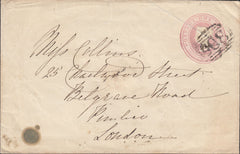 Miss Collins
25 Charlwood Street
Belgrave Road
Pimlico
London